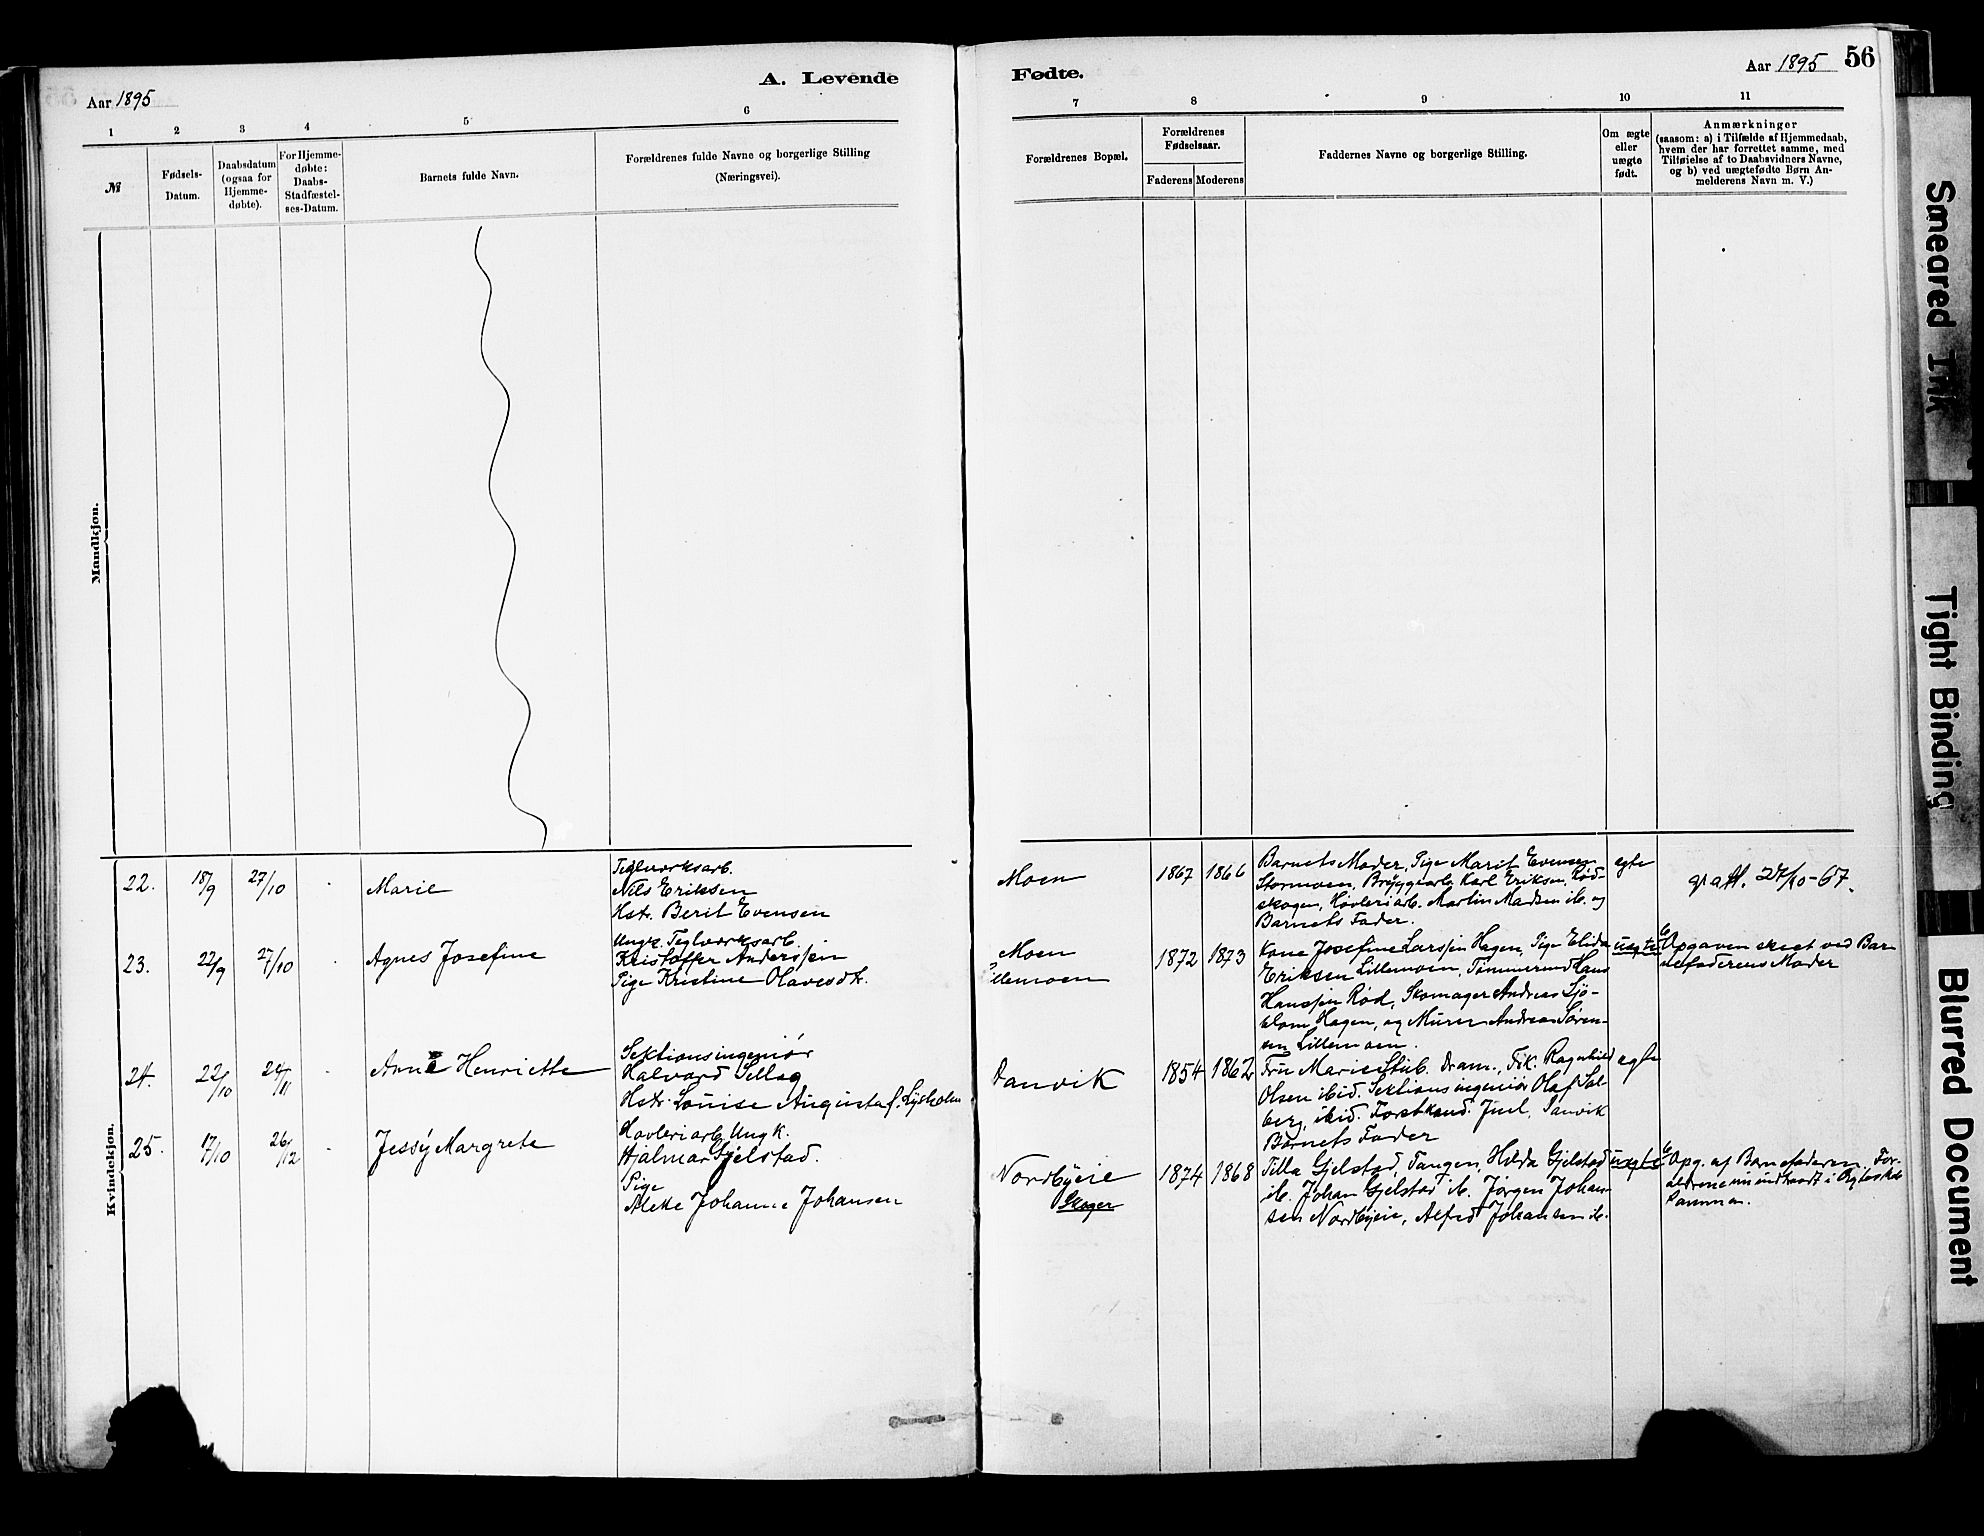 Aar 1895
A. Levende
Fødte.
Aar 1895
56
1 2 3 4 5 6
7 8 9 10 11
№
Fødsels-
Datum.
Daabsdatum
(ogsaa for
Hjemme-
døbte).
For Hjemme-
døbte:
Daabs-
Stadfæstel-
ses-Datum.
Barnets fulde Navn.
Forældrenes fulde Navne og borgerlige Stilling
(Næringsvei).
Forældrenes Bopæl.
Forældrenes
Fødselsaar.
Faderens
Moderens
Faddernes Navne og borgerlige Stilling.
Om ægte
eller
uægte
født.
Anmærkninger
(saasom: a) i Tilfælde af Hjemmedaab,
hvem der har forrettet samme, med
Tilføielse af to Daabsvidners Navne,
og b) ved uægtefødte Børn An-
melderens Navn m. V.)
Mandkjøn.
Kvindekjøn.
22.
18/9
27/10
Marie
Teglverksarb.
Nils Eriksen
Hstr. Berit Evensen
Moen
1867
1866
Barnets Moder, Pige Marit Evensen
Stormoen, Bryggearb. Karl Eriksen, Rød-
skogen, Høvleriarb. Martin Madsen ib. og
Barnets Fader.
egte
att. 27/10-67.
23.
22/9
27/10
Agnes Josefine
Ungk. Teglverksarb.
Kristoffer Anderssen
Pige Kristine Olavesdt.
Moen
Lillemoen
1872
1873
Kone Josefine Larssen Hagen, Pige Elida
Eriksen Lillemoen, Tømmermd Hans
Hanssen Rød, Skomager Andreas Sjø-
blom Hagen, og Murer Andreas Søren-
sen Lillemoen.
uegte
Opgaven skeet ved Bar
nefaderens Moder
24.
22/10
24/11
Anne Henriette
Sektionsingeniør
Halvard Selleg
Hstr. Louise Augusta f. Lysholm
Danvik
1854
1862
Fru Marie Stub. Dram., Frk. Ragnhild
Olsen ibid. Sektionsingeniør Olaf Sol-
berg, ibid. Forstkand. Juel, Danvik
Barnets Fader
egte
25.
17/10
26/12
Jessy Margrete
Høvleriarb. Ungk.
Hjalmar Gjelstad.
Pige
Aleke Johanne Johansen
Nordbyeie
Skoger
1874
1868
Tilla Gjelstad, Tangen, Hilda Gjelstad
ib. Johan Gjelstad ib. Jørgen Johan-
sen Nordbyeie, Alfred Johansen ib.
uegte
Opg. af Barnefaderen. For-
ældrene nu indtraadt i Ægteskab
Drammen.
Smeared Ink
Tight Binding
Blurred Document